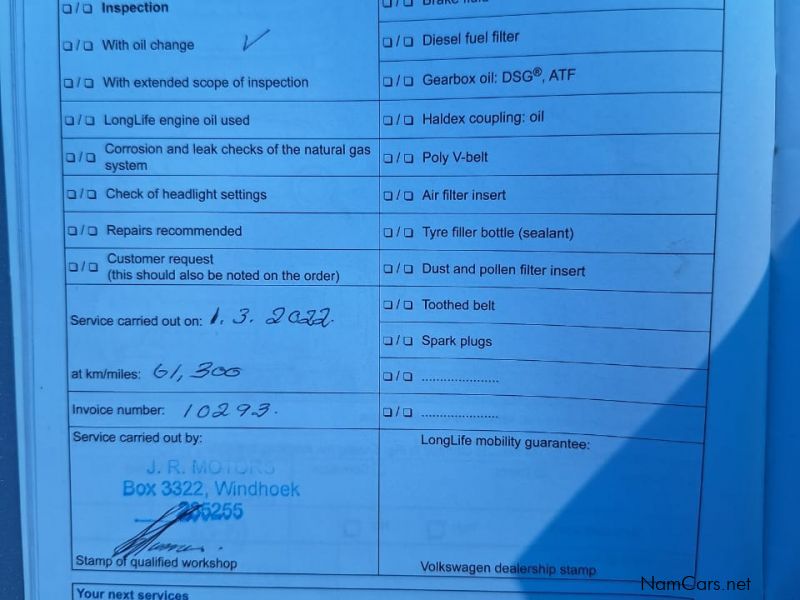 Inspection
With oil change ✓
With extended scope of inspection
LongLife engine oil used
Corrosion and leak checks of the natural gas
system
Check of headlight settings
Repairs recommended
Customer request
(this should also be noted on the order)
Service carried out on: 1. 3. 2022.
at km/miles: 61,300
Invoice number: 10293.
Service carried out by:
J. R. MOTORS
Box 3322, Windhoek
235255
Stamp of qualified workshop
Brake fluid
Diesel fuel filter
Gearbox oil: DSG®, ATF
Haldex coupling: oil
Poly V-belt
Air filter insert
Tyre filler bottle (sealant)
Dust and pollen filter insert
Toothed belt
Spark plugs
LongLife mobility guarantee:
Volkswagen dealership stamp
Your next services
NamCars.net